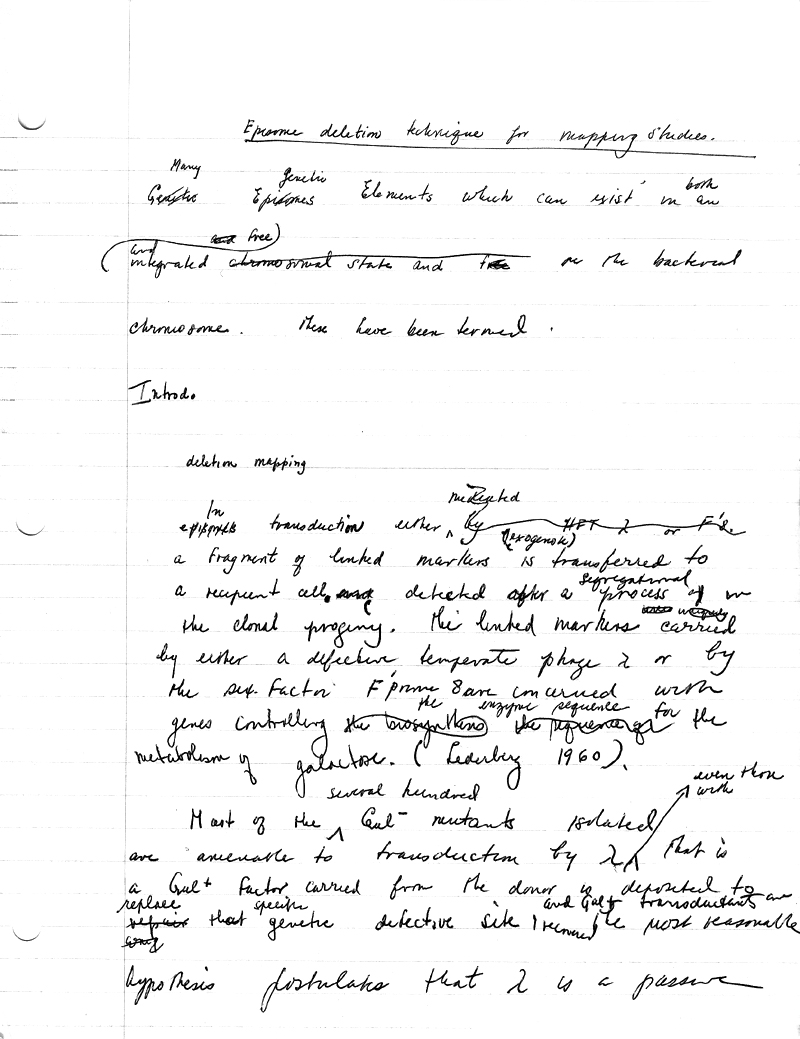 Episome deletion technique for mapping studies.
Many genetic both
Genetic Episomes Elements which can exist in an
and free)
(and
integrated chromosomal state and free on the bacterial
chromosome. These have been termed .
Introd.
deletion mapping
In mediated
episomes transduction either by HFT λ or F's.
(exogenote)
a fragment of linked markers is transferred to
segregational
a recipient cell. and detected after a process of in
the clonal progeny. The linked markers carried
by either a defective temperate phage λ or by
the sex factor F prime 8 are concerned with
the enzyme sequence for
genes controlling the biosynthesis the sequence of the
metabolism of galactose. (Lederberg 1960).
several hundred even those with
Most of the Gal- mutants isolated
are amenable to transduction by λ That is
a Gal+ factor carried from the donor is deposited to
replace specific and Gal+ transductants are
repair that genetic defective site recovered The most reasonable
hypothesis postulates that λ is a passive